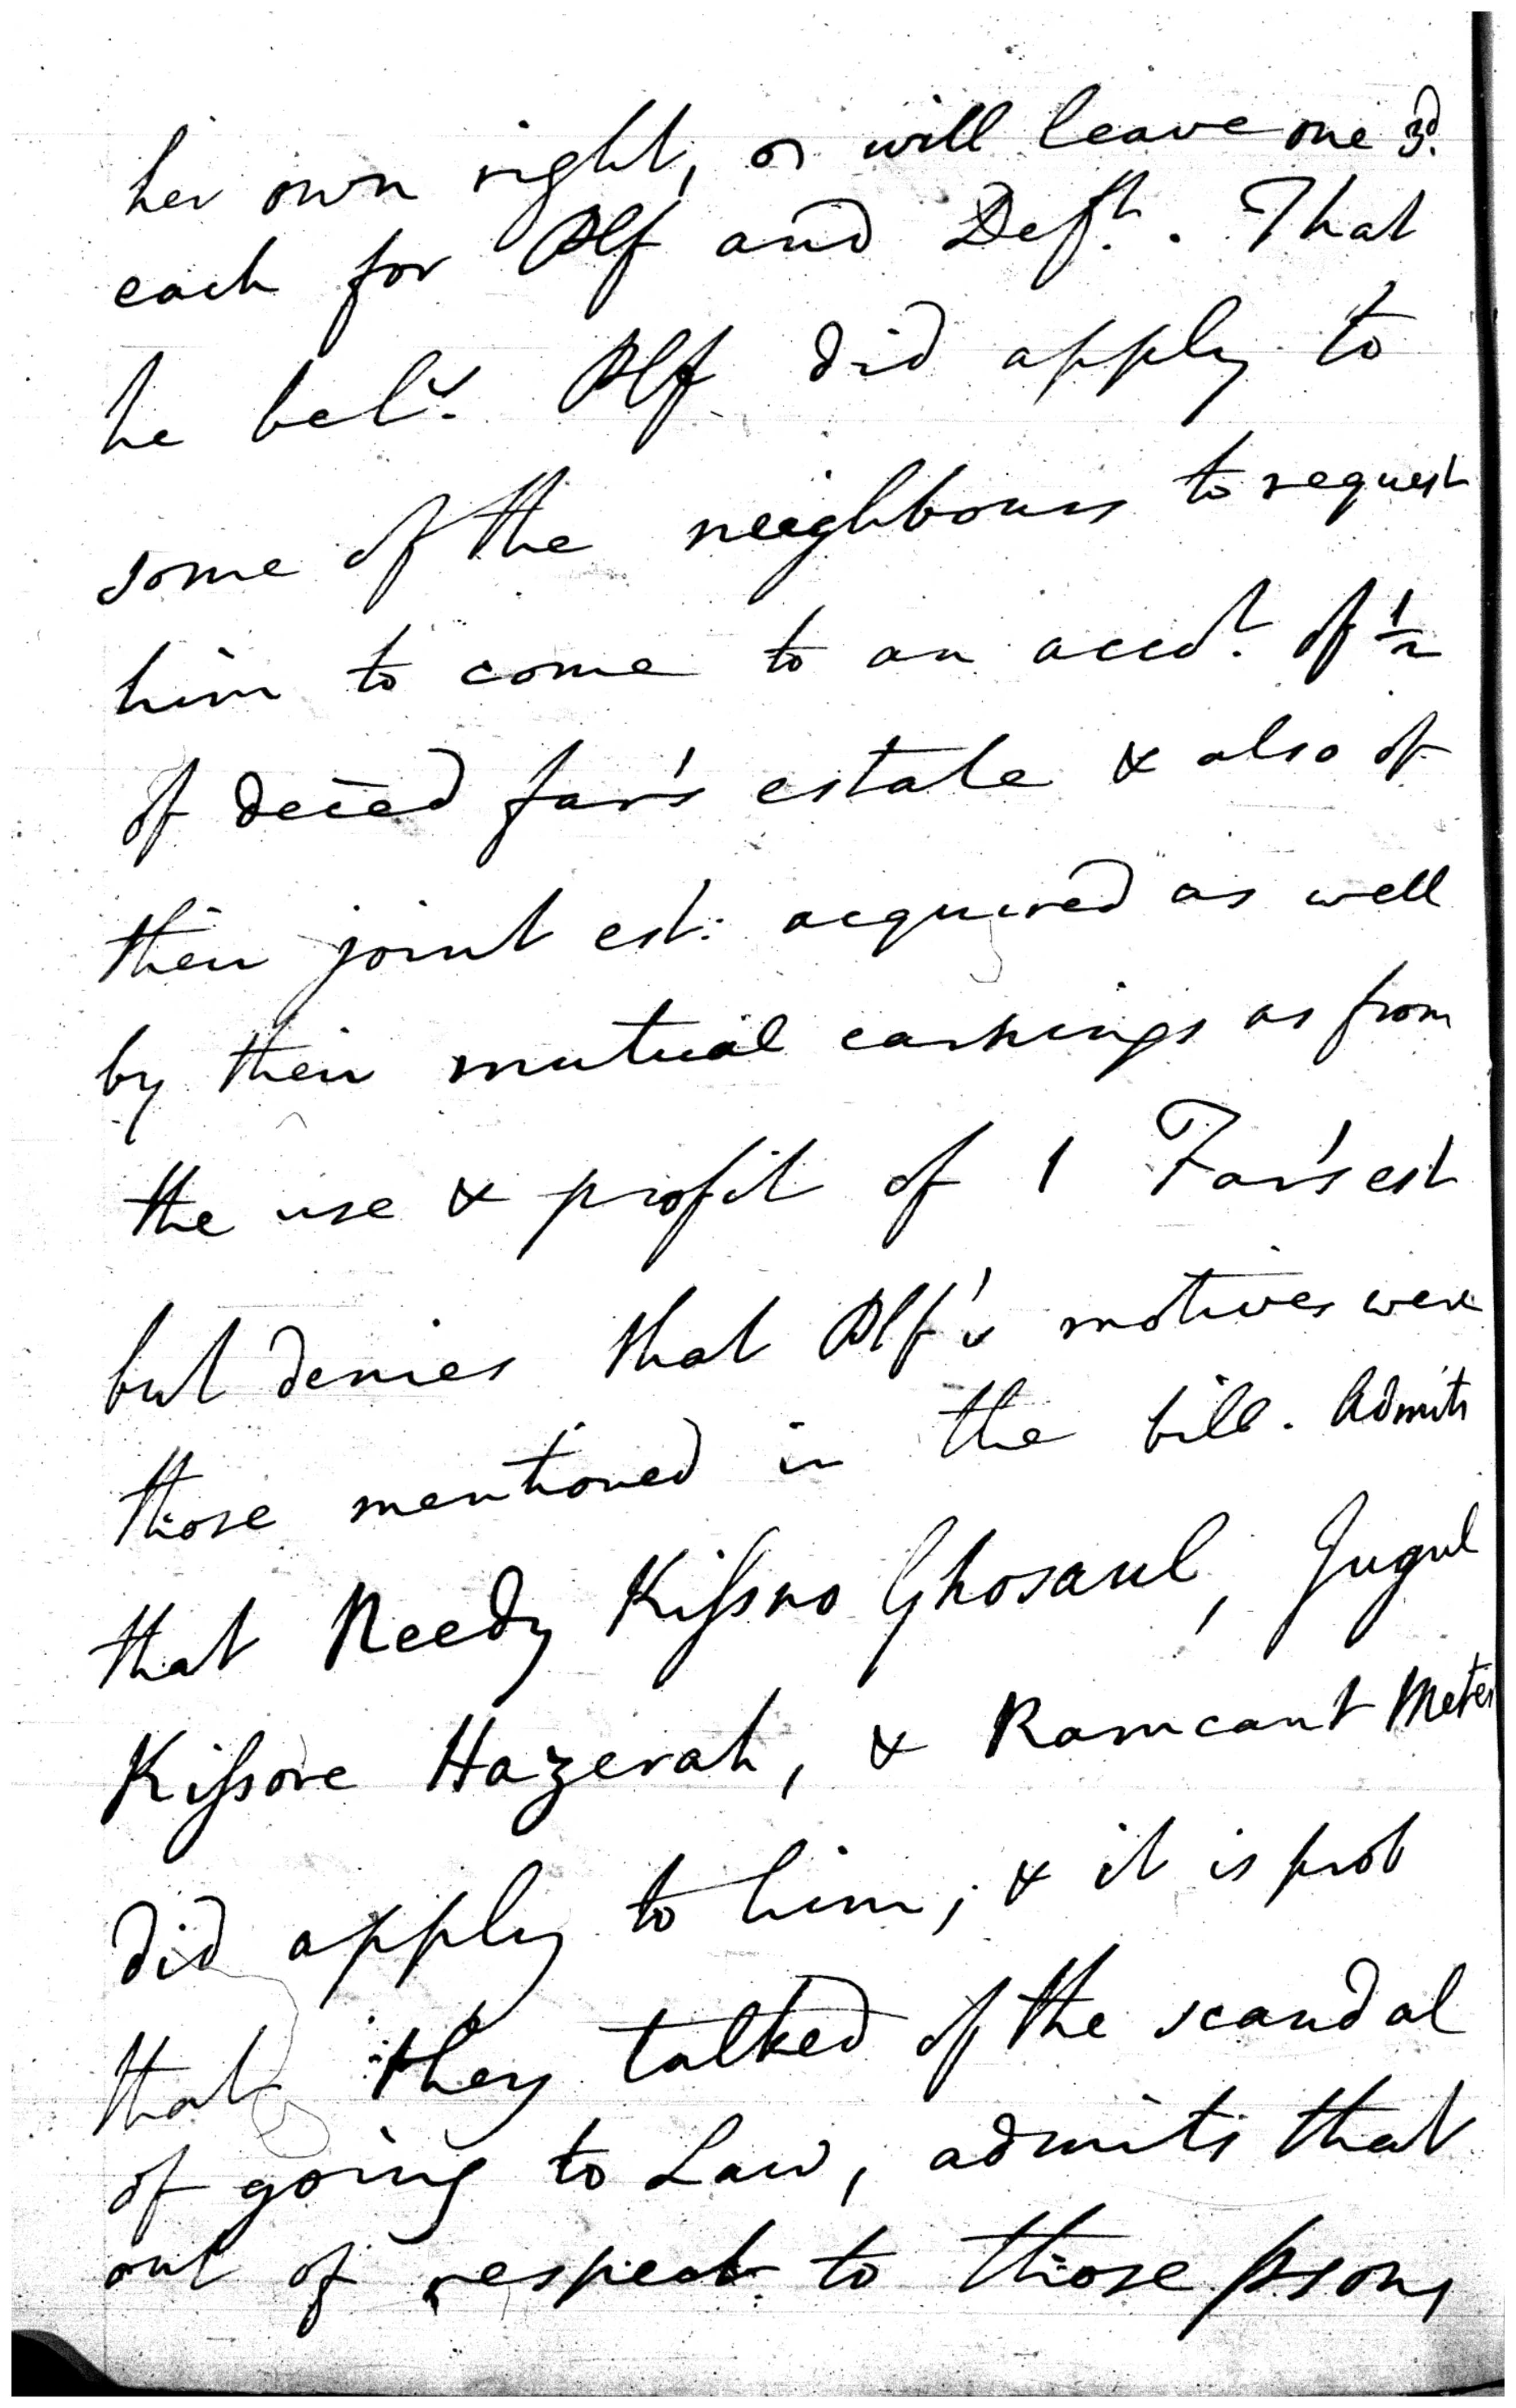 her own right, or will leave one 3d.
each for Plf and Deft. That
he belv. Plf did apply to
some of the neighbours to request
him to come to an accot. of ½
of deced far's estate & also of
their joint est: acquired as well
by their mutual earnings as from
the use & profit of 1 Far's est
but denies that Plf's motives were
those mentioned in the bill. Admits
that Needy Kissno Ghosaul, Jugul
Kissore Hazerah, & Ramcant Meter
did apply to him; & it is prob
that they talked of the scandal
of going to Law, admits that
out of respect to those psons